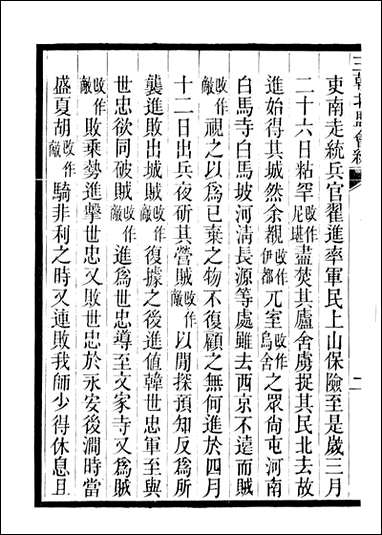 三朝北盟會編
東南走統兵官翟進率軍民上山保險至是歲三月
二十六日粘罕改作尼堪盡焚其廬舍虜捉其民北去故
進始得其城然余覩改作伊都兀室改作烏舍之眾尚屯河南
白馬寺白馬坡河清長源等處雖去西京不遠而賊
改作敵視之以爲已棄之物不復顧之無何進於四月
十二日出兵夜斫其營賊改作敵以閒探預知反爲所
襲進敗出城賊改作敵復據之後進值韓世忠軍至與
世忠欲同破賊改作敵進爲世忠導至文家寺又爲賊
改作敵敗乘勢進擊世忠又敗世忠於永安後澗時當
盛夏胡改作敵騎非利之時又連敗我師少得休息且